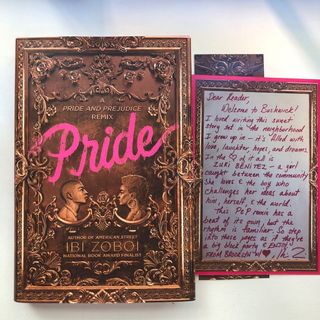 PRIDE AND PREJUDICE
REMIX
Pride
AUTHOR OF AMERICAN STREET
IBI ZOBOI
NATIONAL BOOK AWARD FINALIST
Dear Reader,
Welcome to Bushwick!
I loved writing this sweet
story set in the neighborhood
I grew up in — it's filled with
love, laughter, hopes, and dreams.
In the ♡ of it all is
ZURI BENITEZ — a girl
caught between the community
she loves & the boy who
challenges her ideas about
him, herself, & the world.
This P&P remix has a
beat of its own, but the
rhythm is familiar. So step
into these pages as if they're
a big block party & ENJOY!
FROM BROOKLYN W/ ♥,